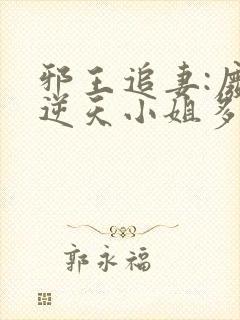 邪王追妻:
逆天小姐
郭永福